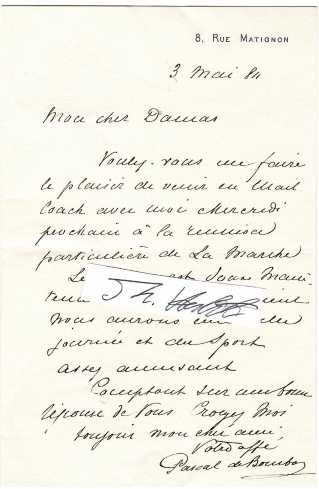 8, Rue Matignon
3 Mai 84
Mon cher Damas
Voulez-vous me faire
le plaisir de venir en Mail
Coach avec moi Mercredi
prochain à la réunion
particulière de La Marche
Le
nous aurons une
journée et du Sport
assez amusant
Comptant sur une bonne
réponse de vous Croyez moi
toujours mon cher ami,
Votre affé
Pascal de Bourbon